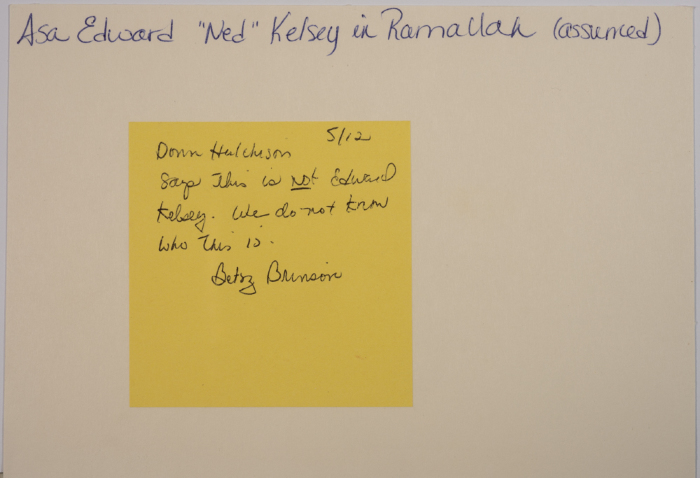 Asa Edward "Ned" Kelsey in Ramallah (assumed)
5/12
Donn Hutchison
Says This is Not Edward
Kelsey. We do not know
who This is.
Betsy Brinson